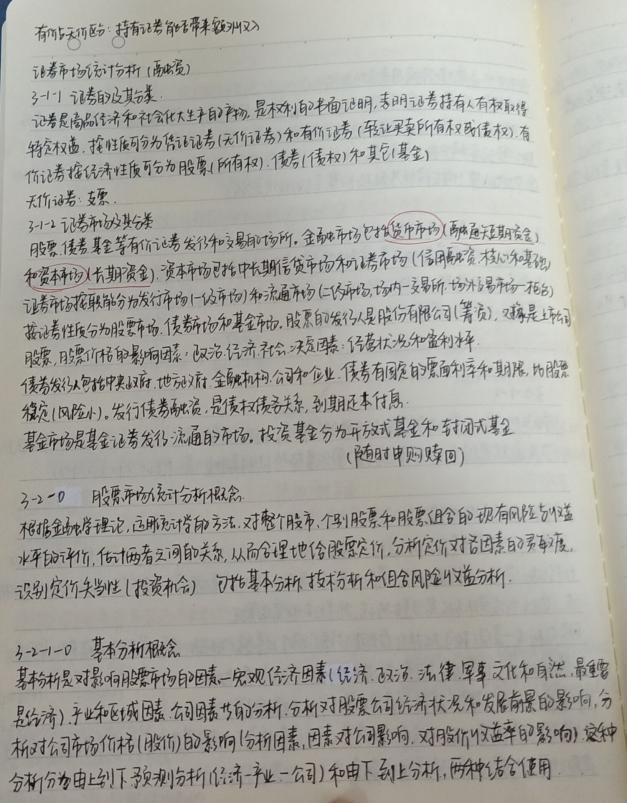 有价与无价区分：持有证券能否带来额外收入
证券市场统计分析（融资）
3-1-1 证券的及其分类.
证券是商品经济和社会化大生产的产物,是权利的书面证明,表明证券持有人有权取得
特定权益.按性质可分为凭证证券(无价证券)和有价证券(转让买卖所有权或债权).有
价证券按经济性质可分为股票(所有权).债券(债权)和其它(基金)
无价证券:支票.
3-1-2 证券市场及其分类
股票.债券基金等有价证券发行和交易的场所。金融市场包括货币市场(融通短期资金)
和资本市场(长期资金).资本市场包括中长期信贷市场和证券市场(信用融资,核心和基础)
证券市场按职能分为发行市场(一级市场)和流通市场(二级市场,场内—交易所.场外交易市场—柜台)
按证券性质分为股票市场.债券市场和基金市场.股票的发行人是股份有限公司(筹资),是上市公司
股票,股票价格的影响因素:政治.经济.社会,决定因素:经营状况和盈利水平.
债券发行人包括中央政府.地方政府.金融机构.公司和企业.债券有固定的票面利率和期限,比股票
稳定(风险小)。发行债券融资,是债权债务关系,到期还本付息.
基金市场是基金证券发行.流通的市场,投资基金分为开放式基金和封闭式基金
(随时申购赎回)
3-2-0 股票市场统计分析概念.
根据金融学理论,运用统计学的方法,对整个股市.个别股票和股票组合的现有风险与收益
水平的评价,估计两者之间的关系,从而合理地给股票定价,分析定价对各因素的灵敏度,
识别定价失当性(投资机会) 包括基本分析.技术分析和组合风险收益分析.
3-2-1-0 基本分析概念
基本分析是对影响股票市场的因素—宏观经济因素(经济.政治.法律.军事.文化和自然,最重要
是经济).产业和区域因素.公司因素等的分析.分析对股票公司经济状况和发展前景的影响,分
析对公司市场价格(股价)的影响(分析因素,因素对公司影响.对股价收益率的影响)这种
分析分为由上到下预测分析(经济—产业—公司)和由下到上分析,两种结合使用.